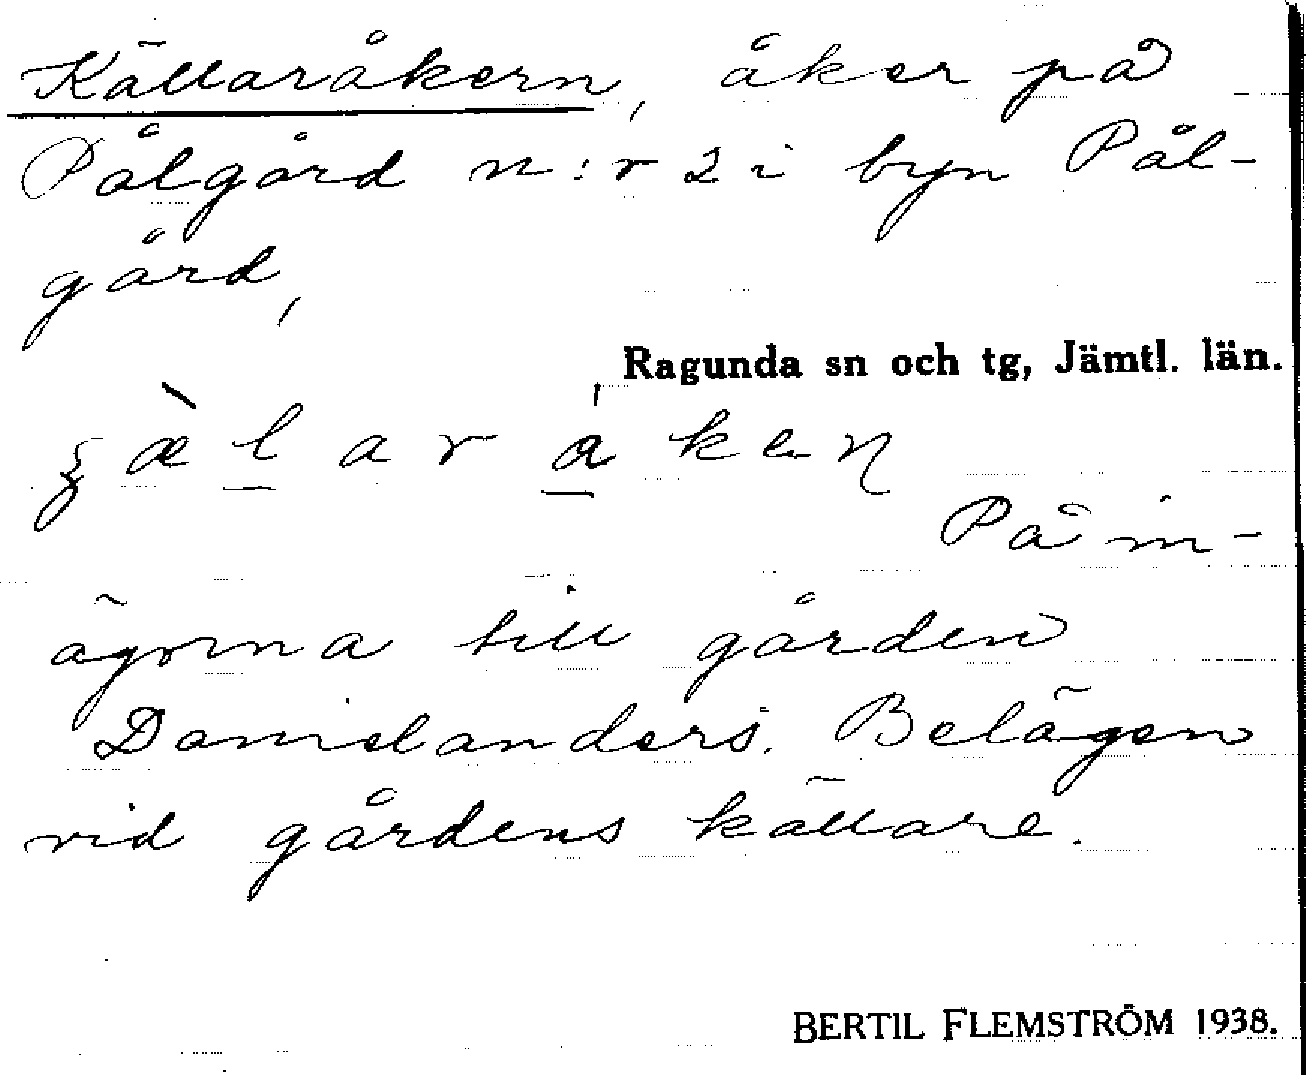 Källaråkern, åker på
Pålgård n:r 2 i byn Pål-
gård,
Ragunda sn och tg, Jämtl. län.
På in-
ägorna till gården
Danielanders. Belägen
vid gårdens källare.
BERTIL FLEMSTRÖM 1938.